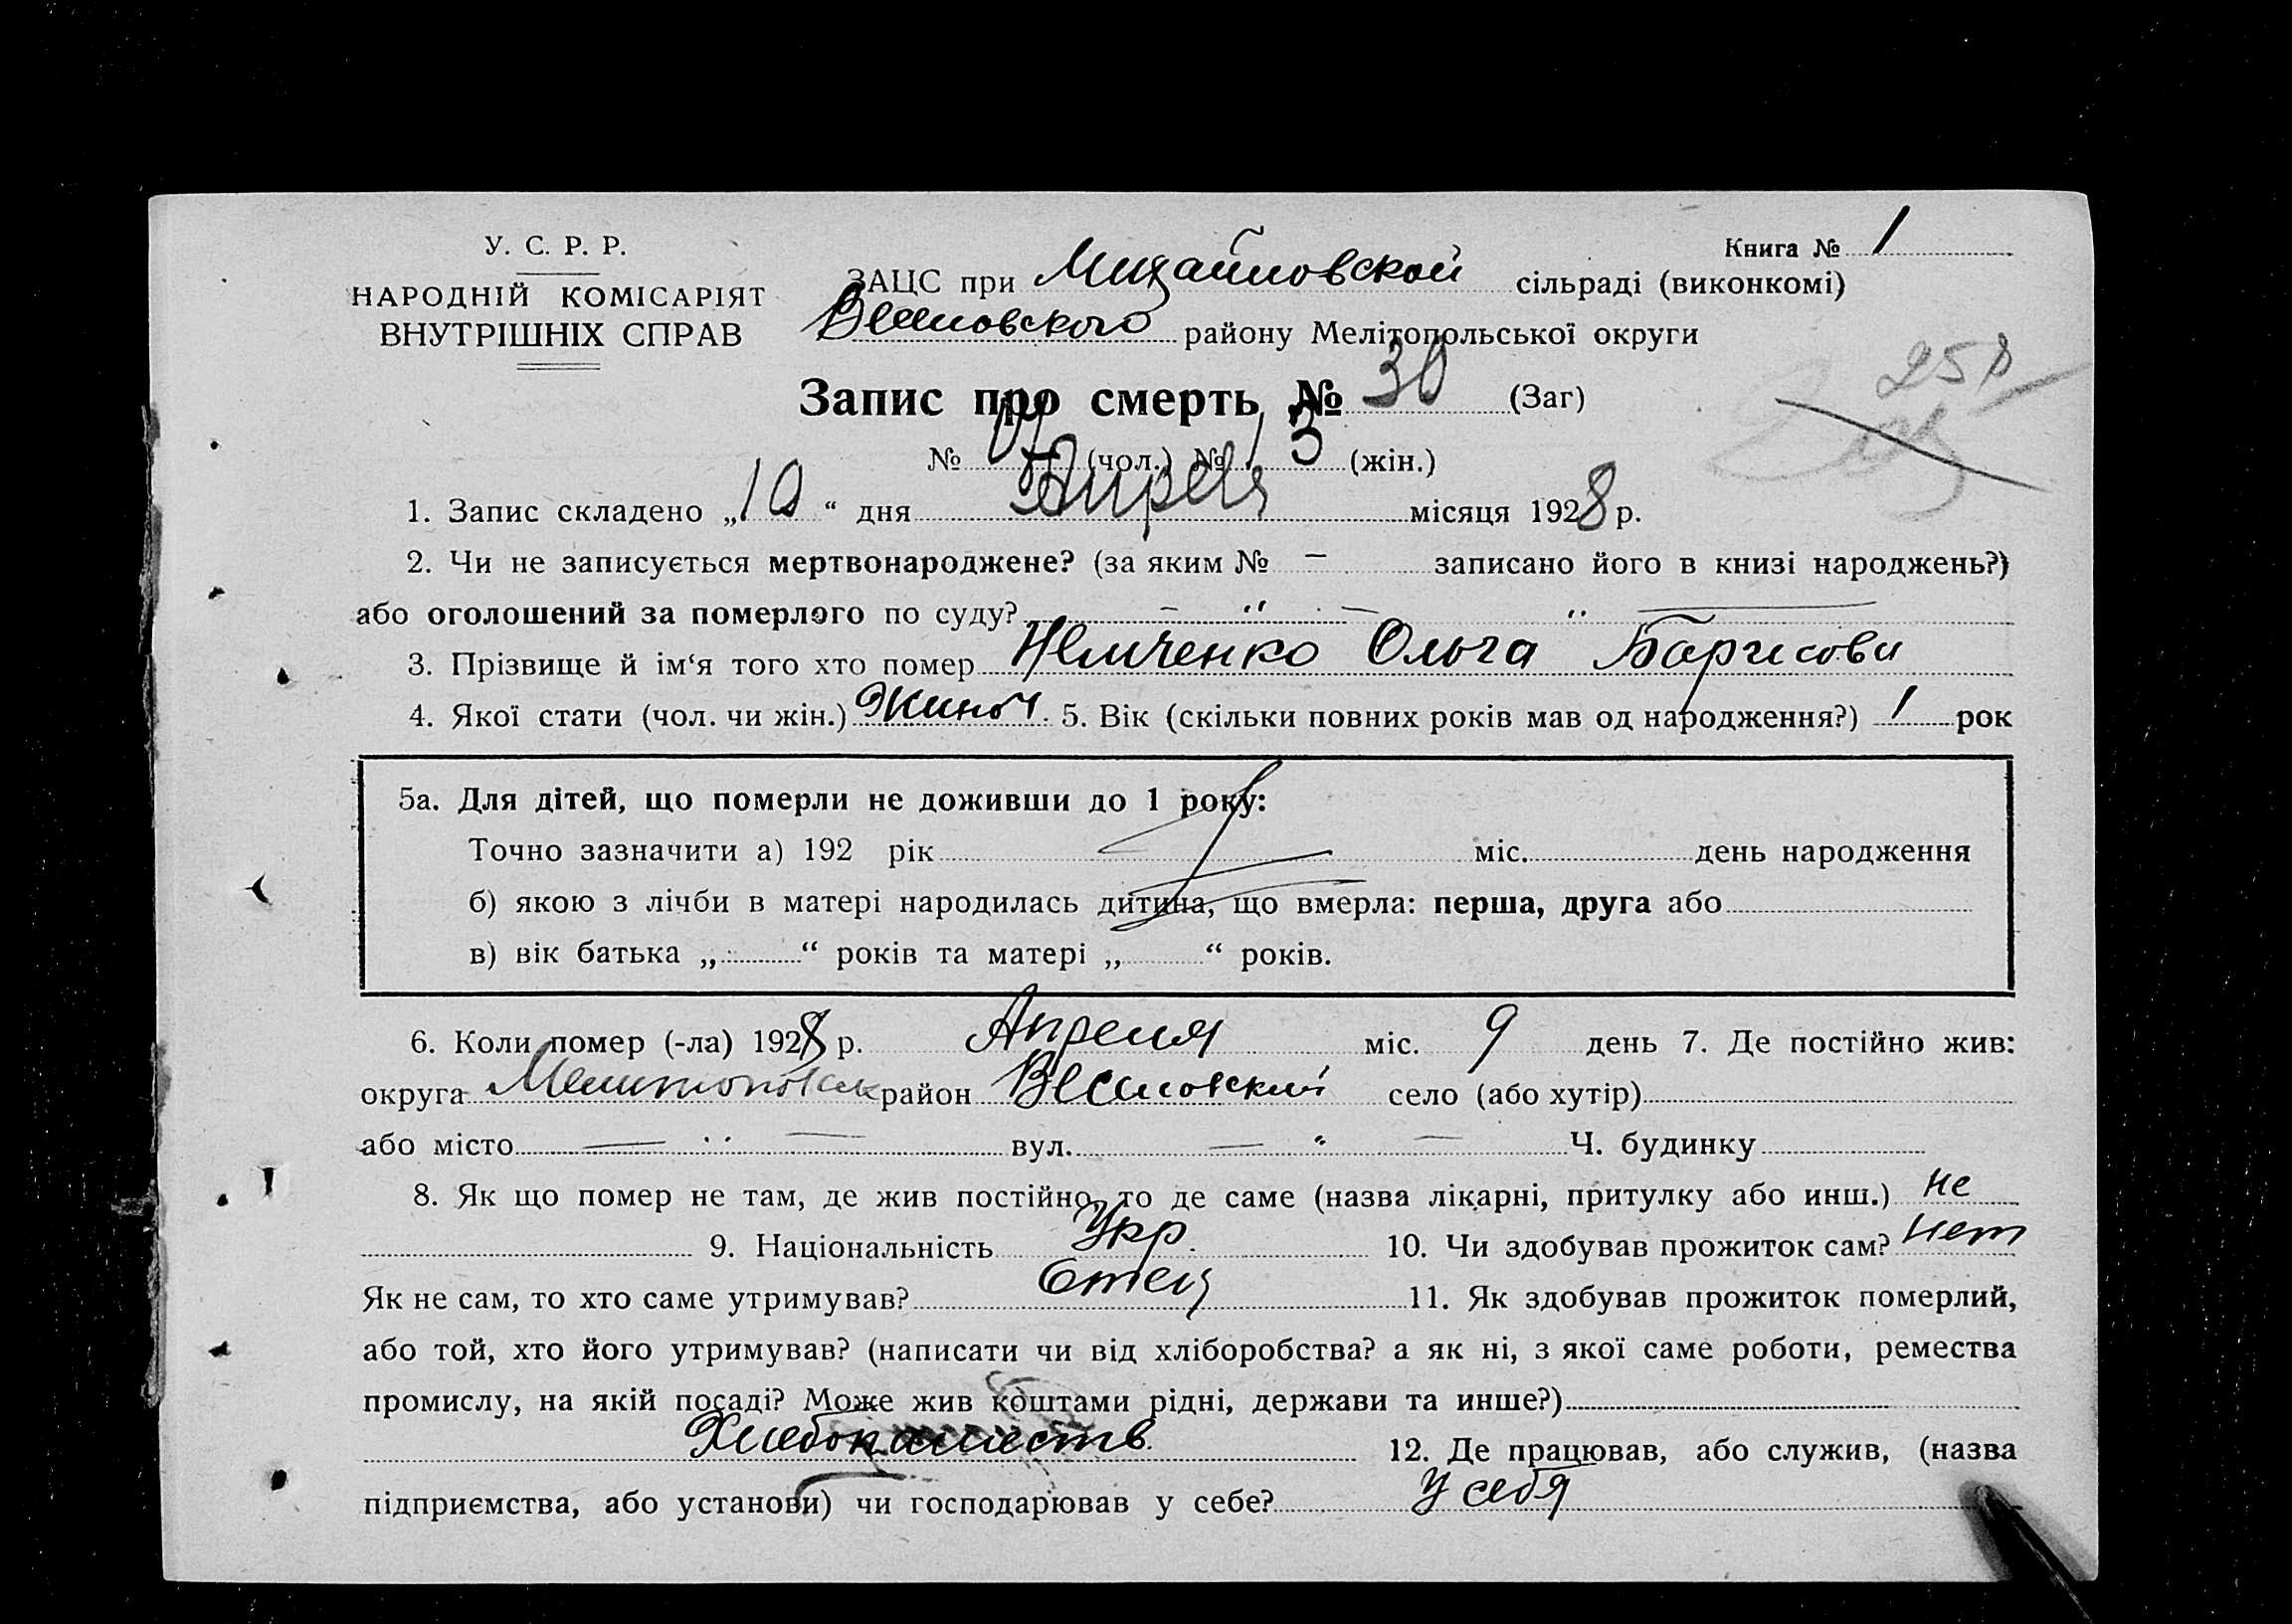 У. С. Р. Р.
НАРОДНІЙ КОМІСАРІЯТ
ВНУТРІШНІХ СПРАВ
Книга № 1
ЗАЦС при Михайловской сільраді (виконкомі)
Веселовского району Мелітопольської округи
Запис про смерть № 30 (Заг)
№ (чол.) № 13 (жін.)
1. Запис складено „10“ дня Апреля місяця 1928 р.
2. Чи не записується мертвонароджене? (за яким № – записано його в книзі народжень?)
або оголошений за померлого по суду? – " – "
3. Прізвище й ім‘я того хто помер Немченко Ольга Борисовн
4. Якої стати (чол. чи жін.) Жиноч. 5. Вік (скільки повних років мав од народження?) 1 рок
5а. Для дітей, що померли не доживши до 1 року:
Точно зазначити а) 192 рік міс. день народження
б) якою з лічби в матері народилась дитина, що вмерла: перша, друга або
в) вік батька „ “ років та матері „ “ років.
6. Коли помер (-ла) 1928 р. Апреля міс. 9 день 7. Де постійно жив:
округа Мелитопольск район Веселовский село (або хутір)
або місто — " — вул. — " — Ч. будинку
8. Як що помер не там, де жив постійно, то де саме (назва лікарні, притулку або инш.) не
9. Національність Укр. 10. Чи здобував прожиток сам? нет
Як не сам, то хто саме утримував? Отец 11. Як здобував прожиток померлий,
або той, хто його утримував? (написати чи від хліборобства? а як ні, з якої саме роботи, ремества
промислу, на якій посаді? Може жив коштами рідні, держави та инше?)
Хлебопашеств. 12. Де працював, або служив, (назва
підприємства, або установи) чи господарював у себе? у себя
258